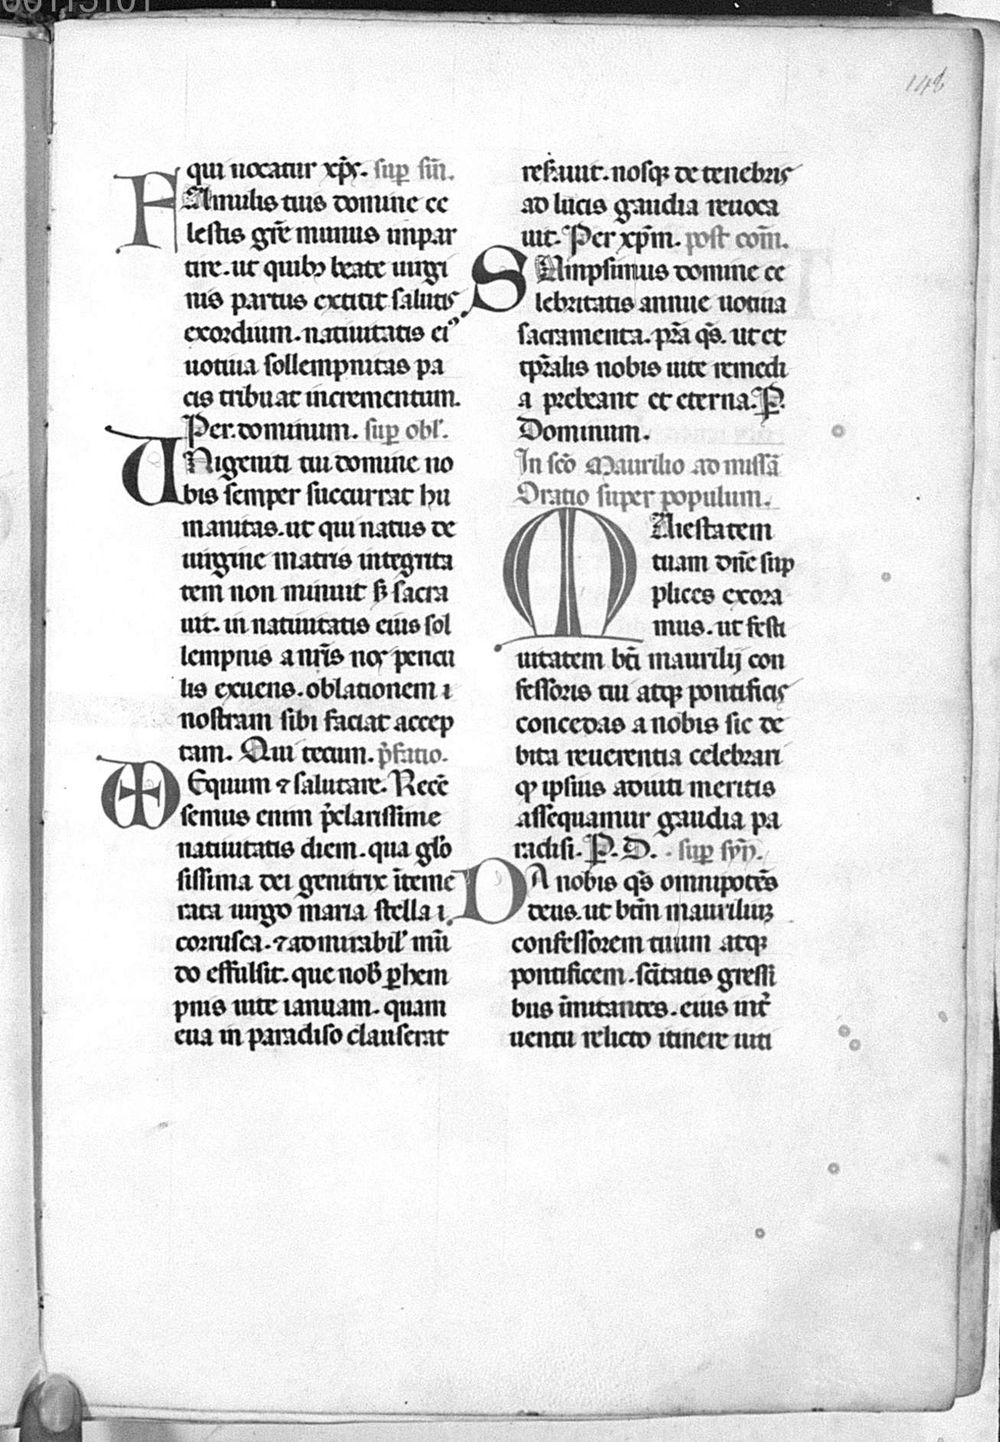 00113101
148
qui uocatur xp̄s. sup sin̄.
FAmulis tuis domine ce
lestis gr̄e munus impar
tire. ut quibꝫ beate uirgi
nis partus extitit salutis
exordium. natiuitatis ei᾽
uotiua sollempnitas pa
cis tribuat incrementum.
Per. dominum. sup obl᾽.
UNigeniti tui domine no
bis semper succurrat hu
manitas. ut qui natus de
uirgine matris integrita
tem non minuit sꝫ sacra
uit. in natiuitatis eius sol
lempniis a nr̄is nos pericu
lis exuens. oblationem
nostram sibi faciat accep
tam. Qui tecum. p̄fatio.
VD Equum ⁊ salutare. Recē
semus enim p̄clarissime
natiuitatis diem. qua glo᾽
sissima dei genitrix īteme
rata uirgo maria stella
corrusca. ⁊ admirabil᾽ mū
do effulsit. que nob̄ ꝑhem
pnis uite ianuam. quam
eua in paradiso clauserat
reserauit. nosqꝫ de tenebris
ad lucis gaudia reuoca
uit. Per xp̄m. post com̄.
SAmpsimus domine ce
lebritatis annue uotiua
sacramenta. pr̄a qs̄. ut et
tp̄ralis nobis uite remedi
a prebeant et eterna. P.
Dominum.
In sc̄o Maurilio ad missā
Oratio super populum.
MAiestatem
tuam dn̄e sup
plices exora
mus. ut festi
uitatem bt̄i maurilij con
fessoris tui atqꝫ pontificis
concedas a nobis sic de
bita reuerentia celebrari
qꝫ ipsius adiuti meritis
assequamur gaudia pa
radisi. P. D. sup syn̄.
DA nobis qs̄ omnipotēs
deus. ut bt̄m mauriliuꝫ
confessorem tuum atqꝫ
pontificem. sc̄itatis gressi
bus īmitantes. eius int̄
uentu relicto itinere uiti